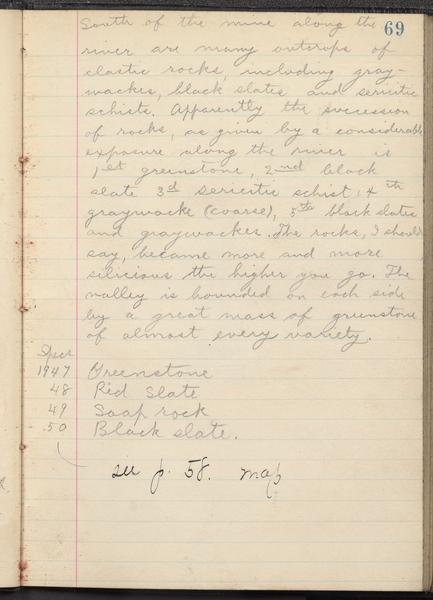 69
South of the mine along the
river are many outcrops of
clastic rocks, including gray-
wackes, black slates and sericitic
schists. Apparently the succession
of rocks, as given by a considerable
exposure along the river is
1st greenstone, 2nd black
slate 3rd sericitic schist, 4th
graywacke (coarse), 5th black slates
and graywackes. The rocks, I should
say, became more and more
silicious the higher you go. The
valley is bounded on each side
by a great mass of greenstone
of almost every variety.
Specs
1947 Greenstone
48 Red Slate
49 Soap rock
50 Black slate.
see p. 58. map